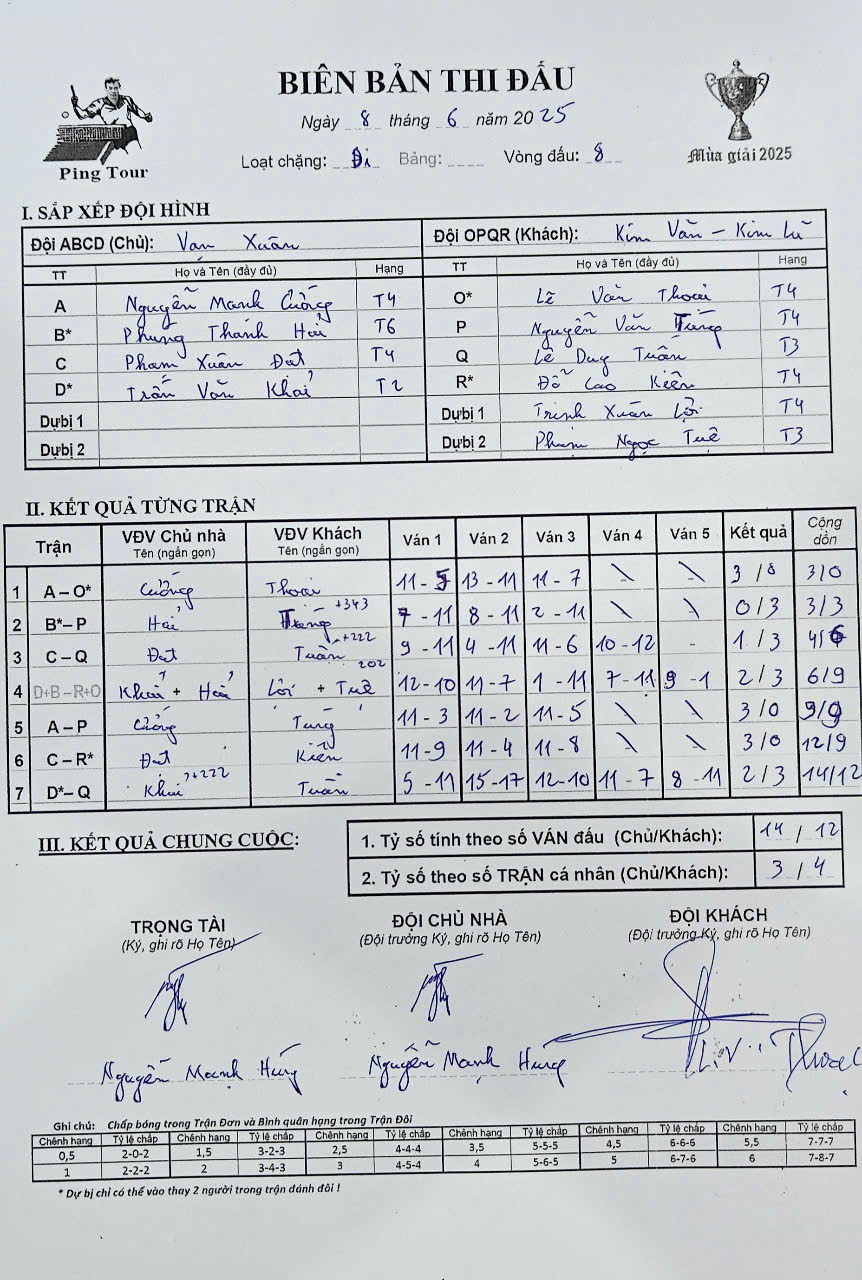 BIÊN BẢN THI ĐẤU
Ngày 8 tháng 6 năm 2025
Loạt chặng: Đi Bảng: Vòng đấu: 8
Ping Tour
Mùa giải 2025
I. SẮP XẾP ĐỘI HÌNH
Đội ABCD (Chủ): Vạn Xuân Đội OPQR (Khách): Kim Văn - Kim Lũ
TT Họ và Tên (đầy đủ) Hạng TT Họ và Tên (đầy đủ) Hạng
A Nguyễn Mạnh Cường T4 O* Lê Văn Thoại T4
B* Phùng Thanh Hải T6 P Nguyễn Văn Tùng T4
C Phạm Xuân Đạt T4 Q Lê Duy Tuấn T3
D* Trần Văn Khải T2 R* Đỗ Cao Kiên T4
Dự bị 1 Dự bị 1 Trịnh Xuân Lợi T4
Dự bị 2 Dự bị 2 Phạm Ngọc Tuệ T3
II. KẾT QUẢ TỪNG TRẬN
Trận VĐV Chủ nhà Tên (ngắn gọn) VĐV Khách Tên (ngắn gọn) Ván 1 Ván 2 Ván 3 Ván 4 Ván 5 Kết quả Cộng dồn
1 A – O* Cường Thoại 11-5 13-11 11-7 \ \ 3/0 3/0
2 B* – P Hải Tùng +343 7-11 8-11 2-11 \ \ 0/3 3/3
3 C – Q Đạt Tuấn +222 9-11 4-11 11-6 10-12 - 1/3 4/6
4 D+B – R+O Khải + Hải Lợi + Tuệ 202 12-10 11-7 1-11 7-11 2/3 6/9
5 A – P Cường Tùng 11-3 11-2 11-5 \ \ 3/0 9/9
6 C – R* Đạt Kiên 11-9 11-4 11-8 \ \ 3/0 12/9
7 D* – Q Khải Tuấn +222 5-11 15-17 12-10 11-7 8-11 2/3 14/12
III. KẾT QUẢ CHUNG CUỘC:
1. Tỷ số tính theo số VÁN đấu (Chủ/Khách): 14 / 12
2. Tỷ số theo số TRẬN cá nhân (Chủ/Khách): 3 / 4
TRỌNG TÀI ĐỘI CHỦ NHÀ ĐỘI KHÁCH
(Ký, ghi rõ Họ Tên) (Đội trưởng Ký, ghi rõ Họ Tên) (Đội trưởng Ký, ghi rõ Họ Tên)
Nguyễn Mạnh Hùng Nguyễn Mạnh Hùng L.V. Thoại
Ghi chú: Chấp bóng trong Trận Đơn và Bình quân hạng trong Trận Đôi
Chênh hạng Tỷ lệ chấp Chênh hạng Tỷ lệ chấp Chênh hạng Tỷ lệ chấp Chênh hạng Tỷ lệ chấp Chênh hạng Tỷ lệ chấp Chênh hạng Tỷ lệ chấp
0,5 2-0-2 1,5 3-2-3 2,5 4-4-4 3,5 5-5-5 4,5 6-6-6 5,5 7-7-7
1 2-2-2 2 3-4-3 3 4-5-4 4 5-6-5 5 6-7-6 6 7-8-7
* Dự bị chỉ có thể vào thay 2 người trong trận đánh đôi !